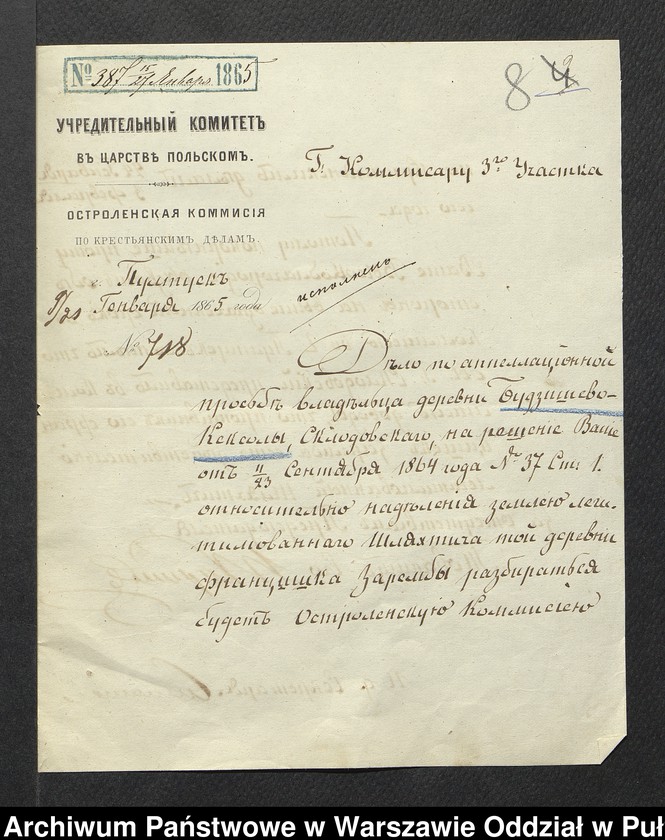 № 387 15/27 Января 1865
8 4
УЧРЕДИТЕЛЬНЫЙ КОМИТЕТЪ
ВЪ ЦАРСТВѢ ПОЛЬСКОМЪ.
Г. Коммисару 3го Участка
ОСТРОЛЕНСКАЯ КОММИСІЯ
ПО КРЕСТЬЯНСКИМЪ ДѢЛАМЪ.
г. Пултускъ
9/21 Генваря 1865 года
исполнено
№ 718
Дѣло по аппелляціонной
просьбѣ владѣльца деревни Будзишево-
Кексолы, Склодовскаго, на решеніе Ваше
отъ 11/23 Сентября 1864 года № 37 Ст. 1.
относительно надѣленія землею леги-
тимованнаго Шляхтича той деревни
Францишка Зарембы разбираться
будетъ Остроленскую Коммисіею
Archiwum Państwowe w Warszawie Oddział w Puł